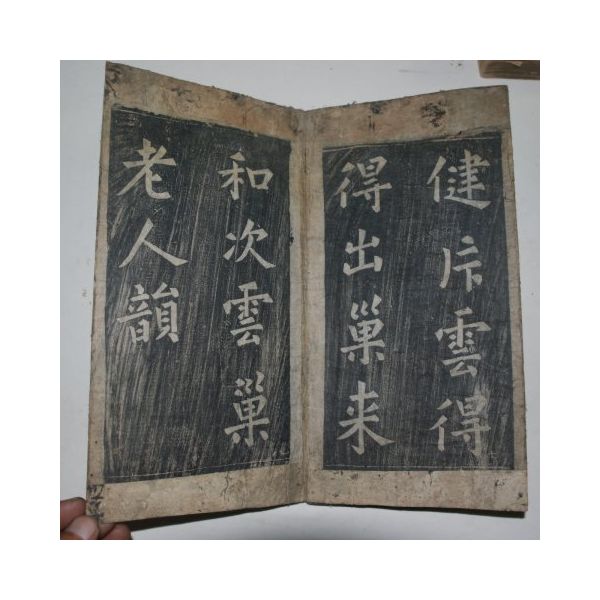 健斥雲得
得出巢来
和次雲巢
老人韻